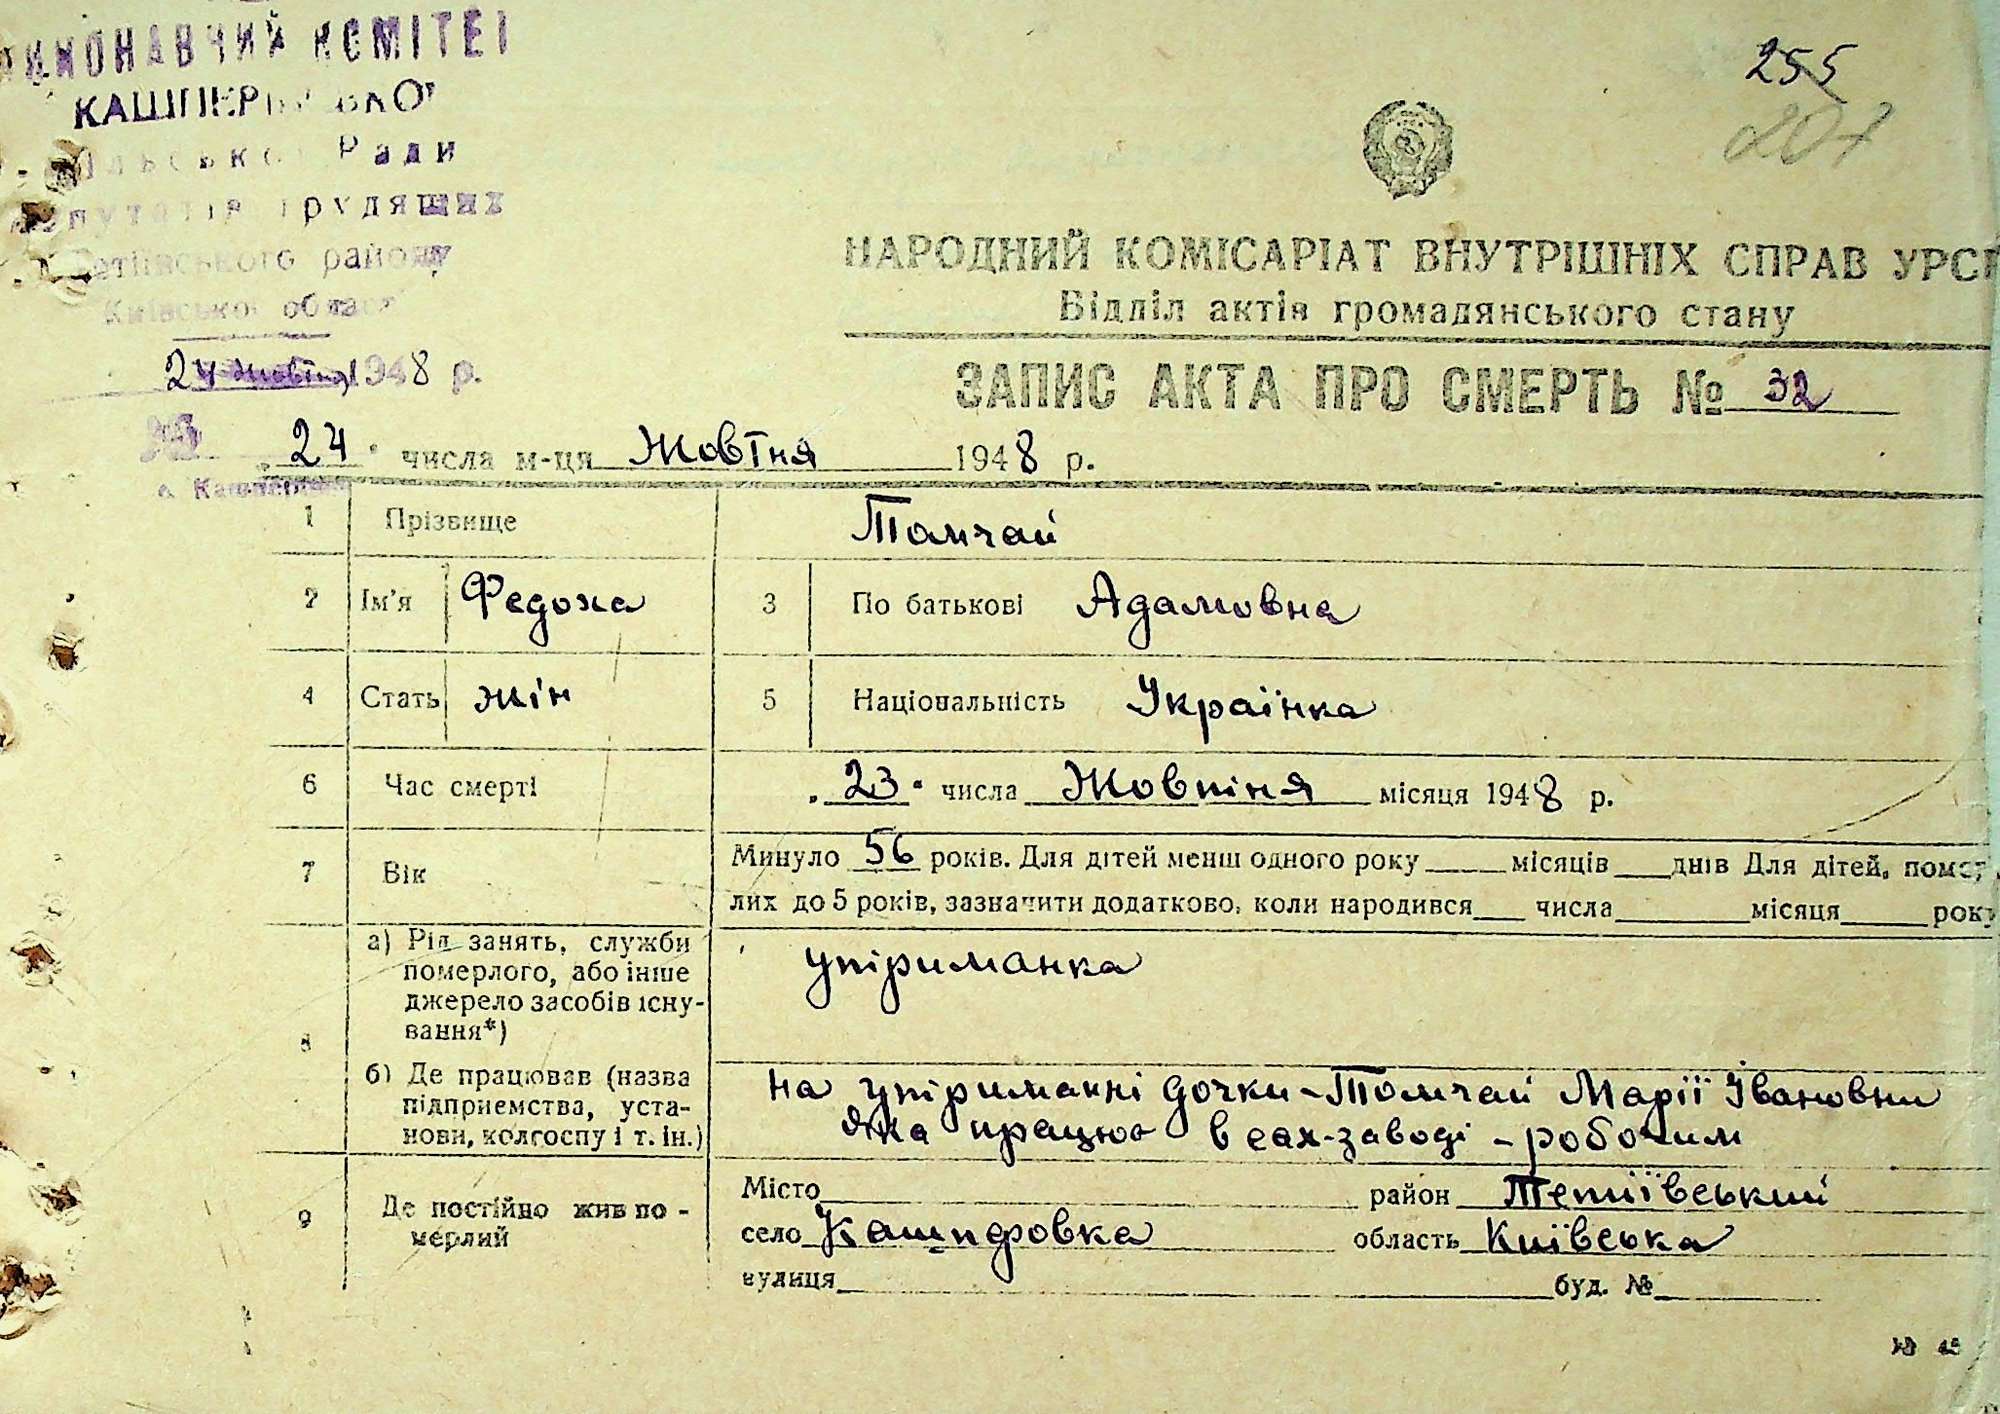 ВИКОНАВЧИЙ КОМІТЕТ
Ради
трудящих
району
Київської області
24 жовтня 1948 р.
255
207
НАРОДНИЙ КОМІСАРІАТ ВНУТРІШНІХ СПРАВ УРСР
Відділ актів громадянського стану
ЗАПИС АКТА ПРО СМЕРТЬ № 32
24 числа м-ця Жовтня 1948 р.
1 Прізвище Томчай
2 Ім'я Федоха 3 По батькові Адамовна
4 Стать жін 5 Національність Українка
6 Час смерті „23" числа Жовтня місяця 1948 р.
7 Вік Минуло 56 років. Для дітей менш одного року ____ місяців ____ днів Для дітей, помер-
лих до 5 років, зазначити додатково, коли народився ____ числа ____ місяця ____ року
8 а) Рід занять, служби
померлого, або інше
джерело засобів існу-
вання*)
утріманка
б) Де працював (назва
підприємства, уста-
нови, колгоспу і т. ін.)
на утріманні дочки - Томчай Марії Івановни
яка працює в сах-заводі - робочим
9 Де постійно жив по-
мерлий
Місто ____ район Тетіївський
село Кашперовка область Київська
вулиця ____ буд. № ____